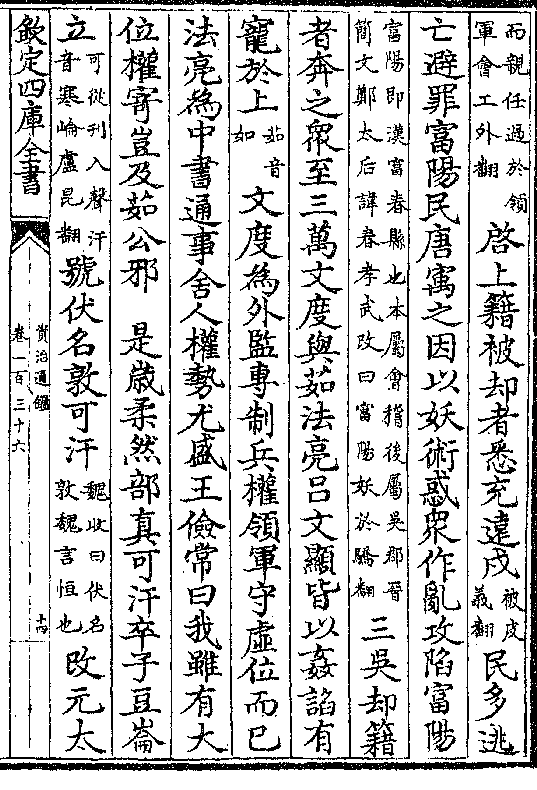 而親任過於領
軍會工外翻
啓上籍被却者悉充遠戍
被皮
義翻
民多逃
亡避罪富陽民唐㝢之因以妖術惑衆作亂攻陷富陽
富陽即漢富春縣也本屬會稽後屬吳郡晉
簡文鄭太后諱春孝武改曰富陽妖於驕翻
三吳却籍
者奔之衆至三萬文度與茹法亮呂文顯皆以姦諂有
寵於上
茹音
如
文度為外監專制兵權領軍守虛位而已
法亮為中書通事舍人權勢尤盛王儉常曰我雖有大
位權寄豈及茹公邪 是歳柔然部真可汗卒子豆崙
立
可從刋入聲汗
音寒崘盧昆翻
號伏名敦可汗
魏收曰伏名
敦魏言恒也
改元太
欽定四庫全書
資治通鑑
卷一百三十六
十四